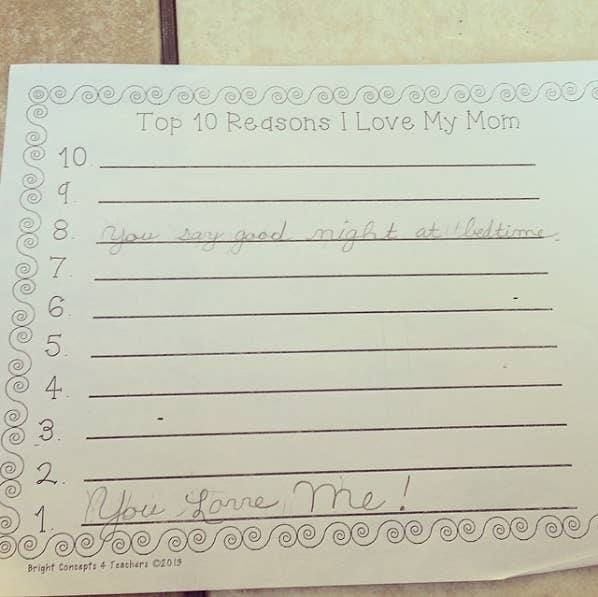 Top 10 Reasons I Love My Mom
10.
9.
8. You say good night at bedtime.
7.
6.
5.
4.
3.
2.
1. You Love Me!
Bright Concepts 4 Teachers ©2013